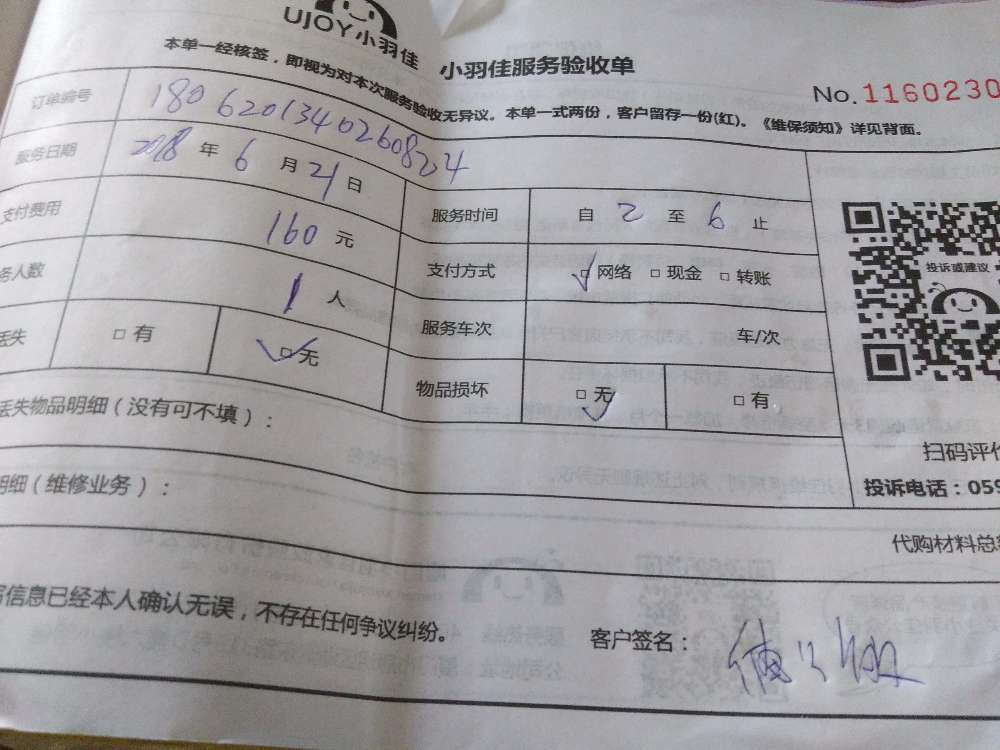 UJOY小羽佳
小羽佳服务验收单
No.1160230
本单一经核签，即视为对本次服务验收无异议。本单一式两份，客户留存一份(红)。《维保须知》详见背面。
订单编号 1806201340260824
服务日期 2018 年 6 月 21 日 服务时间 自 2 至 6 止
支付费用 160 元 支付方式 网络 现金 转账
务人数 1 人 服务车次 车/次
丢失 有 无 物品损坏 无 有
投诉或建议
扫码评价
投诉电话：059
丢失物品明细（没有可不填）：
明细（维修业务）：
代购材料总
写信息已经本人确认无误，不存在任何争议纠纷。
客户签名：